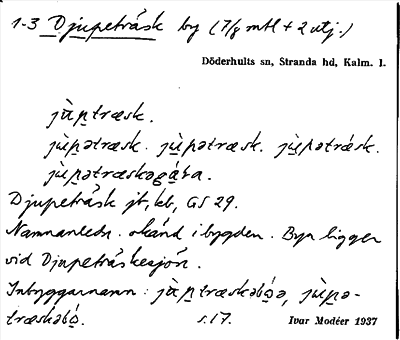 1-3 Djupeträsk by (7/8 mtl + 2 utj.)
Döderhults sn, Stranda hd, Kalm. l.
jùptræsk.
jùpətræsk. jùpətræsk. jùpətræsk.
jùpətræskəgàra.
Djupeträsk jt, kb, GS 29.
Namnanledn. okänd i bygden. Byn ligger
vid Djupeträskesjön.
Inbyggarnamn: jùptræskəbòə, jùpə-
træskəbò. s. 17. Ivar Modéer 1937